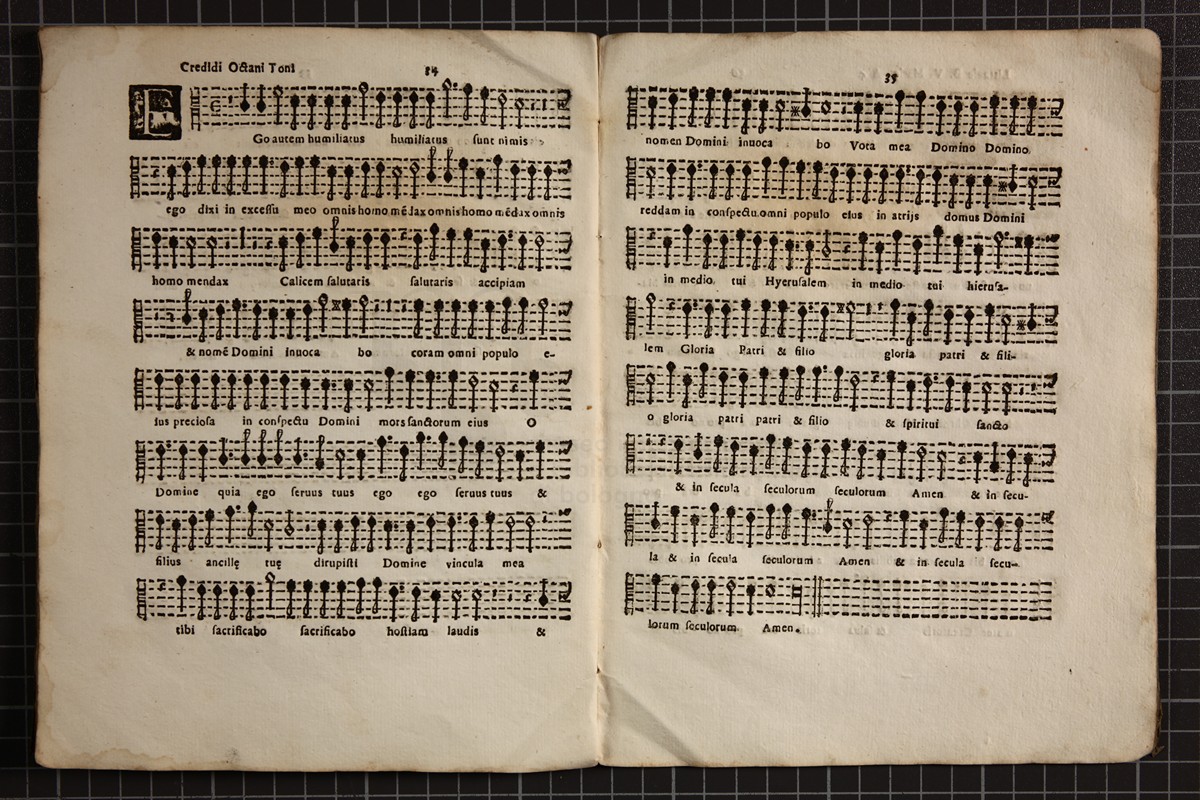 Credidi Octaui Toni
84
EGo autem humiliatus humiliatus ſunt nimis
ego dixi in exceſſu meo omnis homo mēdax omnis homo mēdax omnis
homo mendax Calicem ſalutaris ſalutaris accipiam
& nomē Domini inuoca bo coram omni populo e-
ius precioſa in conſpectu Domini mors ſanctorum eius O
Domine quia ego ſeruus tuus ego ego ſeruus tuus &
filius ancillę tuę dirupiſti Domine vincula mea
tibi ſacrificabo ſacrificabo hoſtiam laudis &
35
nomen Domini inuoca bo Vota mea Domino Domino
reddam in conſpectu omni populo eius in atrijs domus Domini
in medio tui Hyeruſalem in medio tui hieruſa-
lem Gloria Patri & filio gloria patri & fili-
o gloria patri patri & filio & ſpiritui ſancto
& in ſecula ſeculorum ſeculorum Amen & in ſecu-
la & in ſecula ſeculorum Amen & in ſecula ſecu-
lorum ſeculorum Amen.